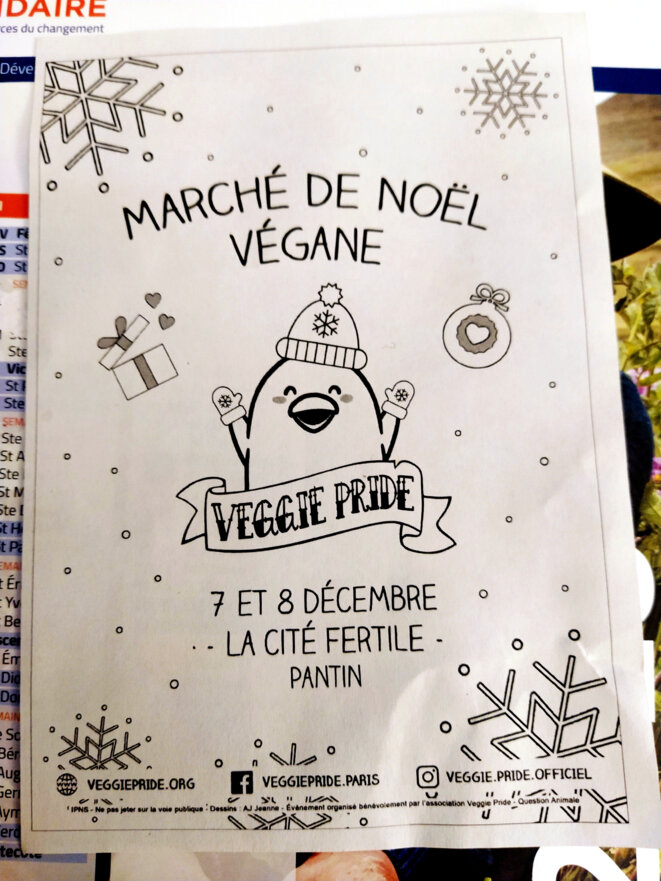 IDAIRE
ces du changement
Déve
MARCHÉ DE NOËL
VÉGANE
VEGGIE PRIDE
7 ET 8 DÉCEMBRE
- LA CITÉ FERTILE -
PANTIN
VEGGIEPRIDE.ORG
VEGGIEPRIDE.PARIS
VEGGIE.PRIDE.OFFICIEL
IPNS - Ne pas jeter sur la voie publique - Dessins : AJ Jeanne - Évènement organisé bénévolement par l'association Veggie Pride - Question Animale